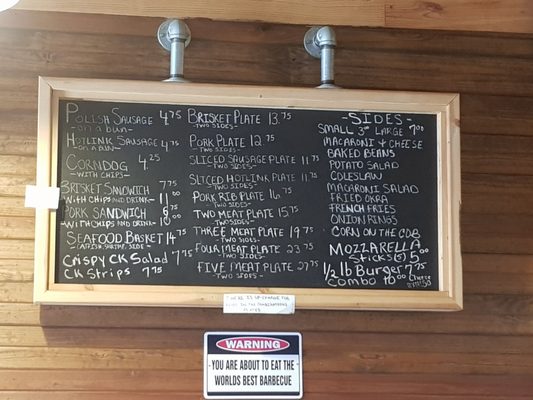 Polish Sausage 4.75
-on a bun-
Hotlink Sausage 4.75
-on a bun-
Corndog 4.25
-with chips
Brisket Sandwich 7.75
with chips and drink 11.00
Pork Sandwich 6.75
with chips and drink 10.00
Seafood Basket 14.75
-catfish, shrimp, side
Crispy CK Salad 7.75
CK Strips 7.75
Brisket Plate 13.75
-Two Sides-
Pork Plate 12.75
-Two Sides-
Sliced Sausage Plate 11.75
-Two Sides-
Sliced Hotlink Plate 11.75
-Two Sides-
Pork Rib Plate 16.75
-Two Sides-
Two Meat Plate 15.75
-Two Sides-
Three Meat Plate 19.75
-Two Sides-
Four Meat Plate 23.75
-Two Sides-
Five Meat Plate 27.75
-Two Sides-
-Sides-
Small 3.00 Large 7.00
Macaroni & Cheese
Baked Beans
Potato Salad
Coleslaw
Macaroni Salad
Fried Okra
French Fries
Onion Rings
Corn on the Cob
Mozzarella
Sticks (5) 5.00
1/2 lb Burger 7.75
Combo 10.00 Cheese
WARNING
YOU ARE ABOUT TO EAT THE
WORLDS BEST BARBECUE